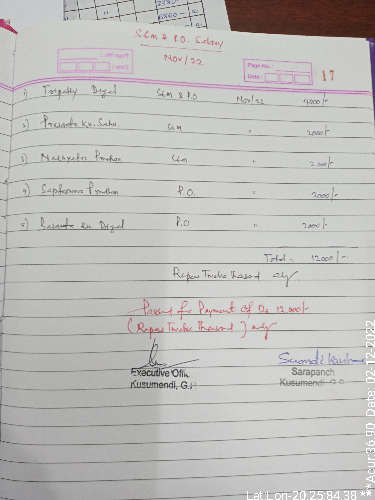 SLM & P.O. Salary
Nov/22
Page No.
Date:
17
1) Tripathy Digal SLM & P.O Nov/22 4000/-
2) Prasanta Ku. Sahu SLM " 2000/-
3) Pradhan SLM " 2000/-
4) Pradhan P.O. " 2000/-
5) Basanta Ku Digal P.O " 2000/-
Total = 12000/-
Rupees Twelve Thousand only
Passed for Payment of Rs 12000/-
(Rupees Twelve Thousand) only
Executive Offic
Kusumendi, G.P.
Sarapanch
Kusumendi G.P.
Lat Lon-20.25 84.38 ***Acur:36.90 Date: 02-12-2022